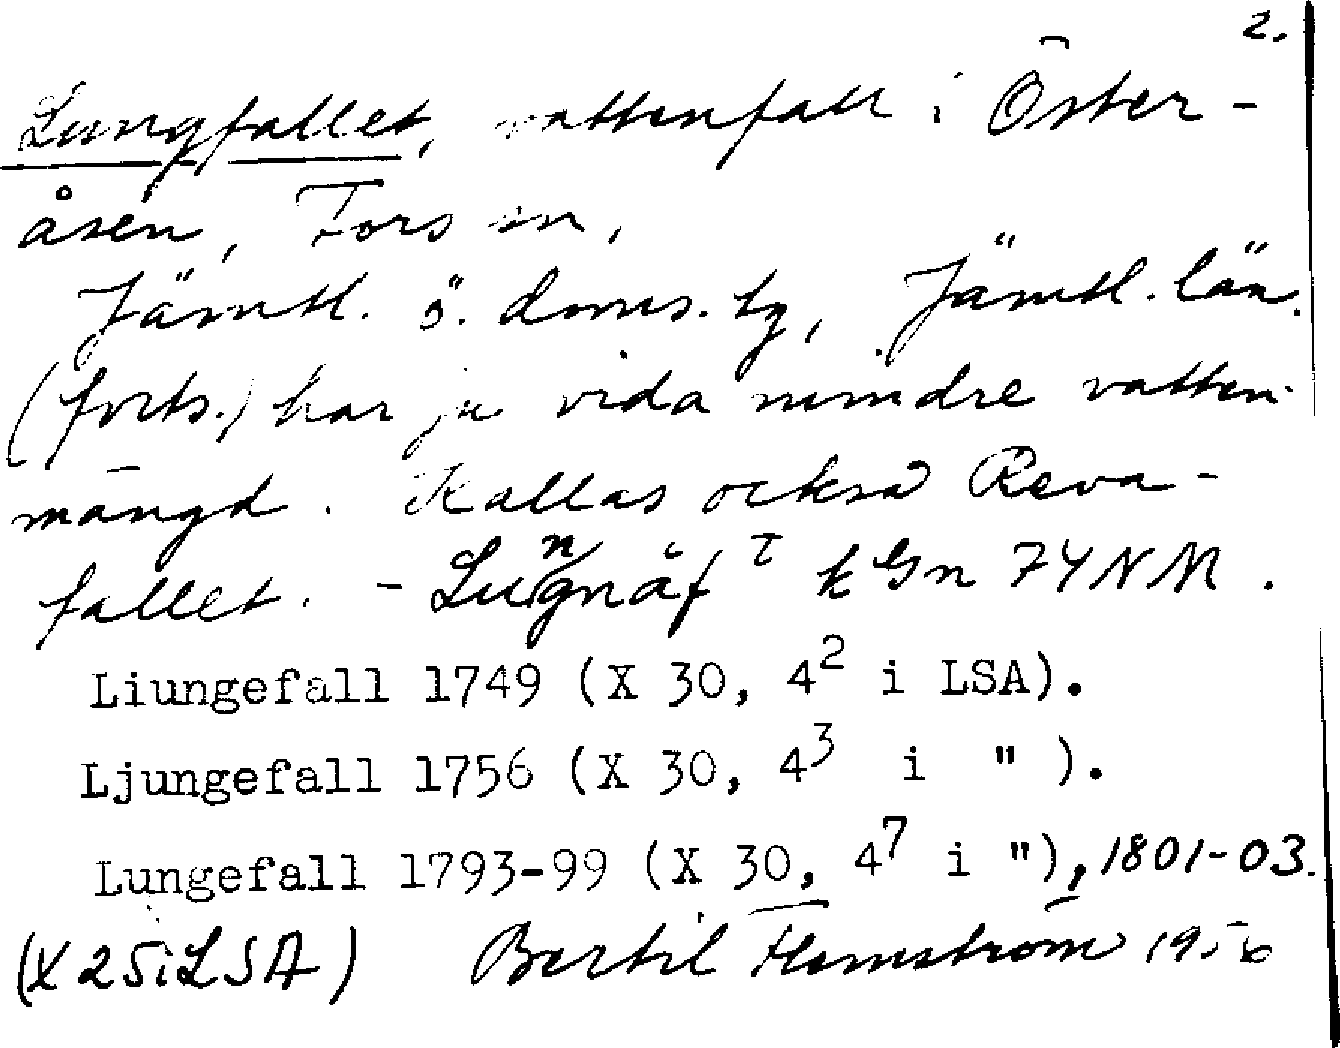 2.
Lungfallet, vattenfall i Öster-
åsen, Fors sn,
Jämtl. ö. doms. tg, Jämtl. län.
(forts.) har ju vida mindre vatten-
mängd. Kallas också Reva-
fallet. - Lungnäf I kGn 74NM.
Liungefall 1749 (X 30, 4² i LSA).
Ljungefall 1756 (X 30, 4³ i " ).
Lungefall 1793-99 (X 30, 4⁷ i "), 1801-03.
(X 25 i LSA) Bertil Flemström 1956